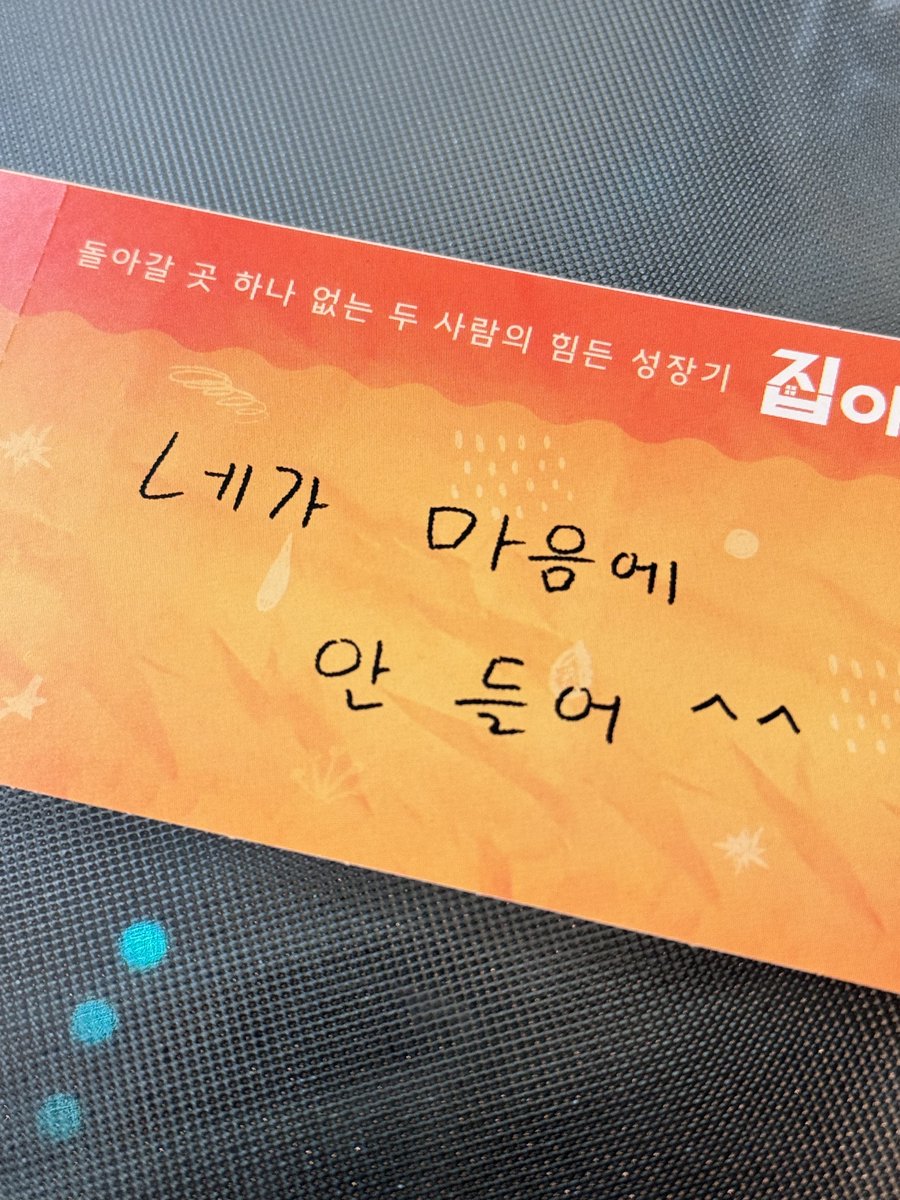 돌아갈 곳 하나 없는 두 사람의 힘든 성장기
네가 마음에
안 들어 ^^